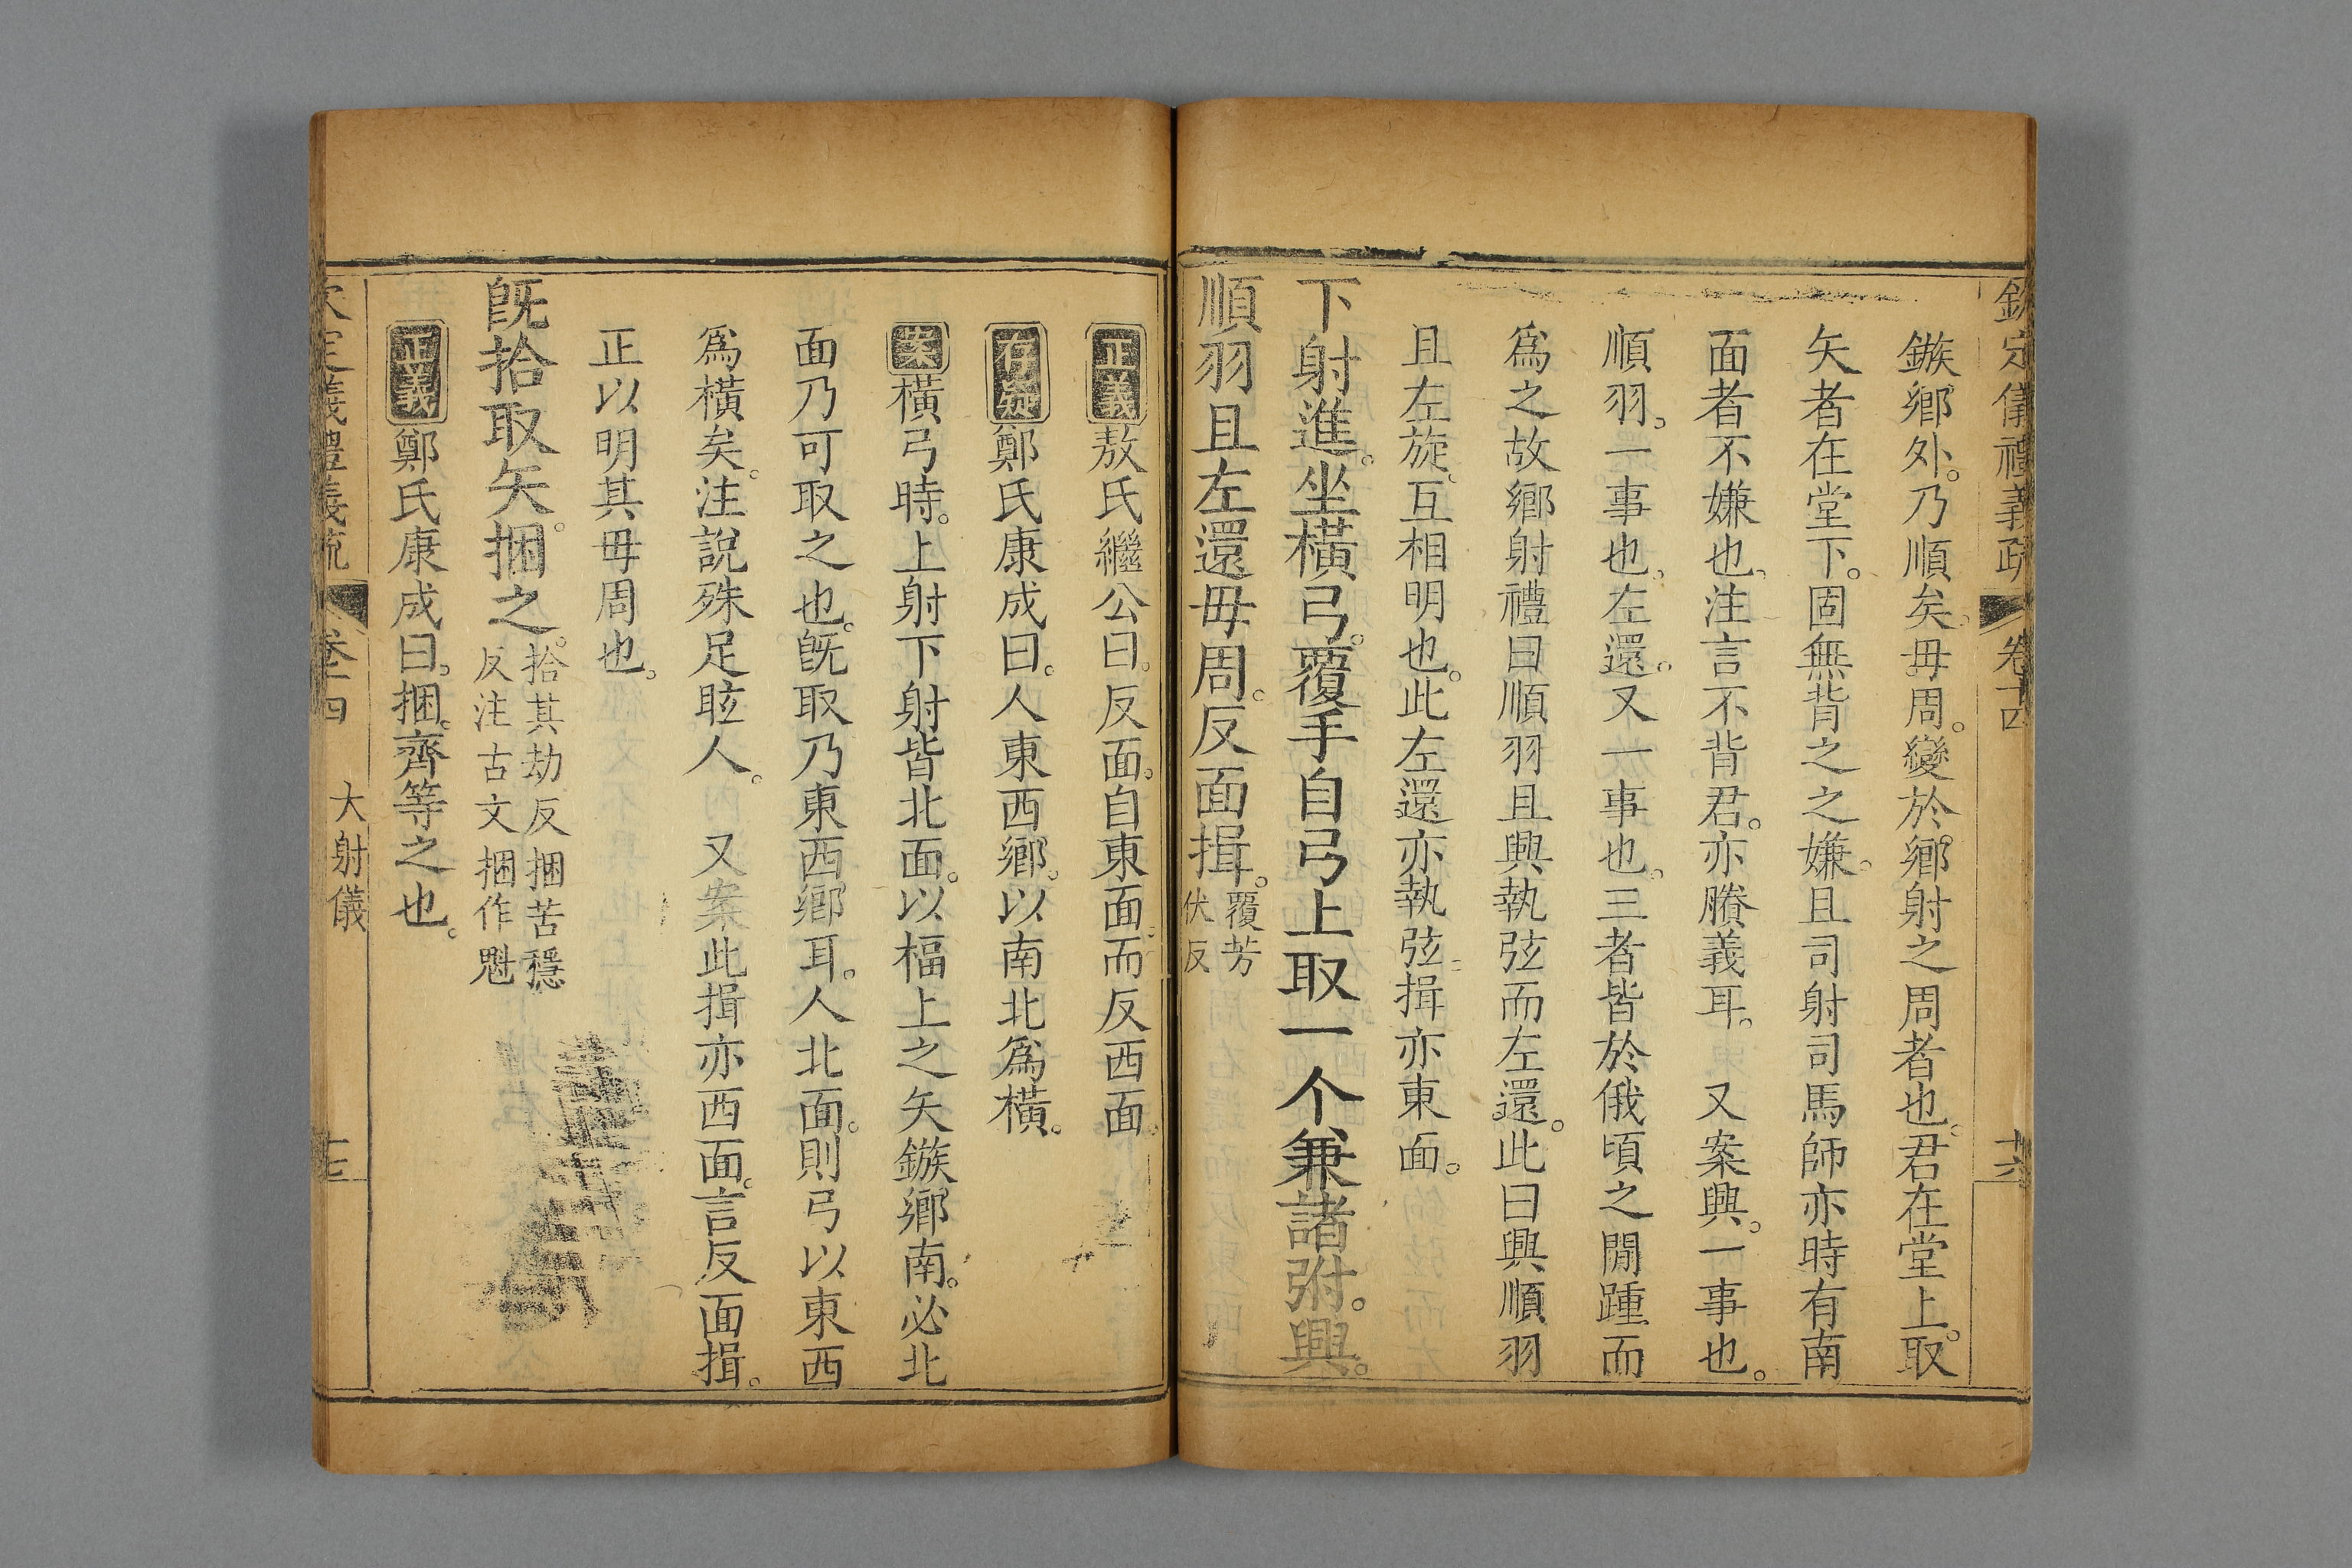 欽定儀禮義疏 卷十四 十六
鏃鄉外。乃順矣。毋周。變於鄉射之周者也。君在堂上。取
矢者在堂下。固無背之之嫌。且司射司馬師亦時有南
面者不嫌也。注言不背君。亦賸義耳。 又案興。一事也。
順羽。一事也。左還。又一事也。三者皆於俄頃之閒踵而
爲之故鄉射禮曰順羽且興執弦而左還。此曰興順羽
且左旋、互相明也。此左還亦執弦揖亦東面。
下射進。坐橫弓。覆手自弓上取一个、兼諸弣。興。
順羽且左還毋周。反面揖。覆芳
伏反
正義敖氏繼公曰。反面。自東面而反西面。
存疑鄭氏康成曰。人東西鄉。以南北爲橫。
案橫弓時。上射下射皆北面。以楅上之矢鏃鄉南。必北
面乃可取之也。旣取乃東西鄉耳。人北面。則弓以東西
爲橫矣。注說殊足眩人。 又案此揖亦西面。言反面揖。
正以明其毋周也。
旣拾取矢。捆之。拾其劫反捆苦穩
反注古文捆作魁
正義鄭氏康成曰。捆。齊等之也。
欽定儀禮義疏 卷十四 大射儀 十七